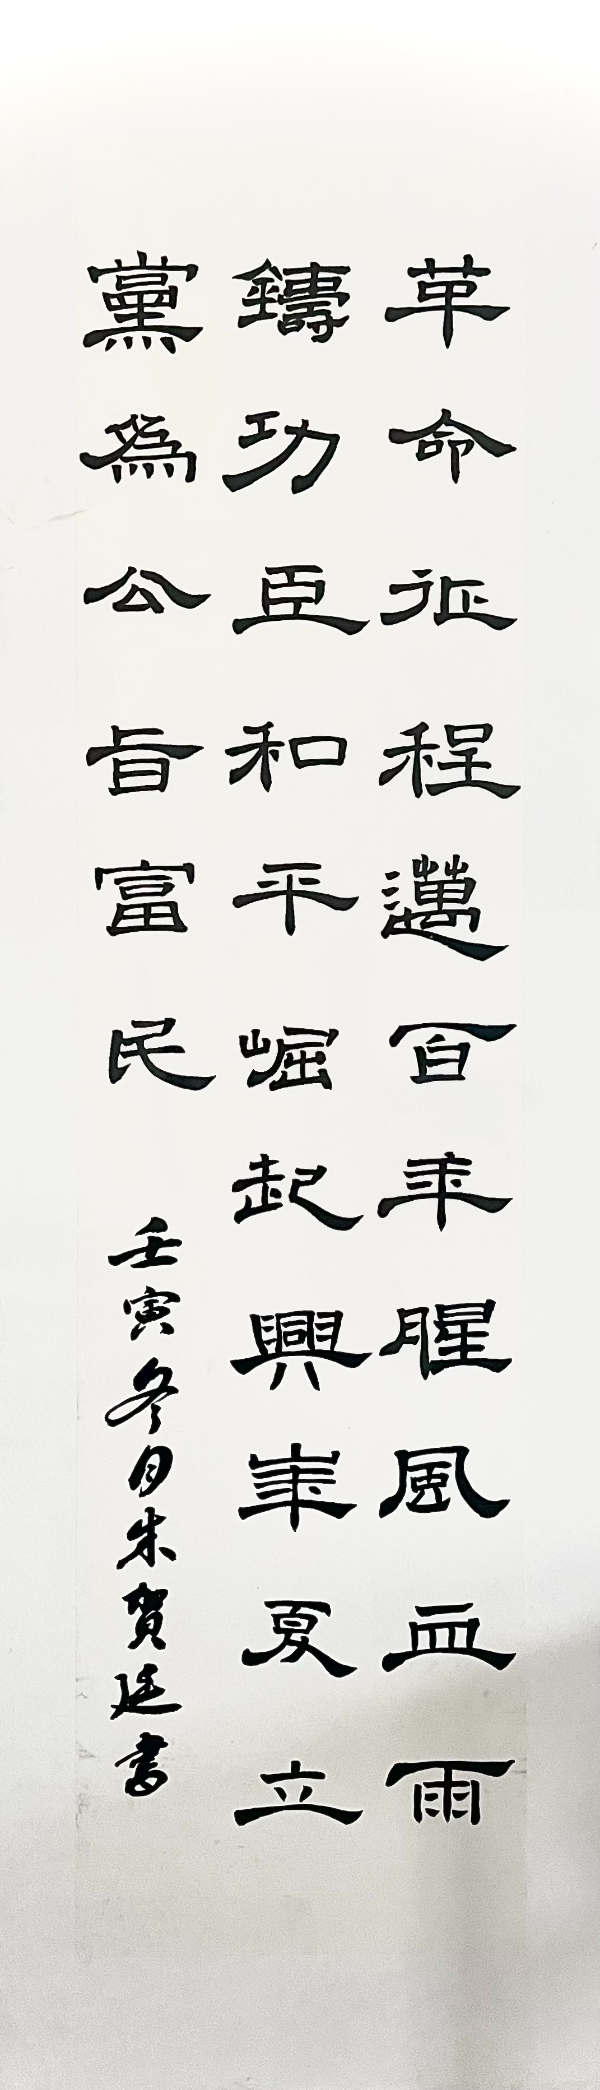 革命征程邁百年腥風血雨
鑄功臣和平崛起興華夏立
黨為公旨富民
壬寅冬月朱賀廷書